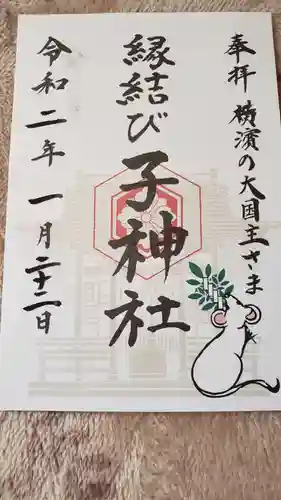 奉拝 横濱の大国主さま
縁結び子神社
令和二年一月二十二日